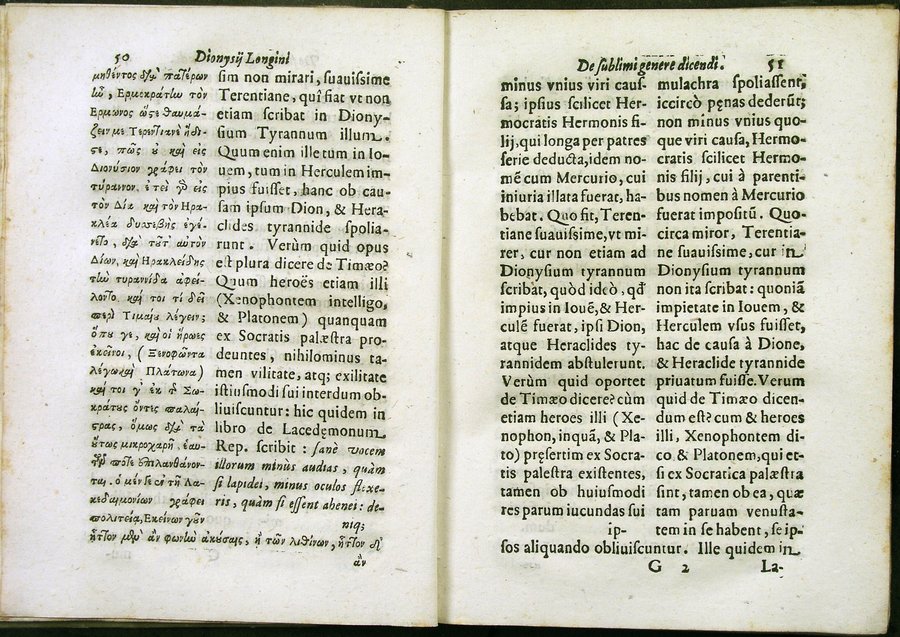 50 Dionysij Longini
μηθέντος πατέρων
ἦν, Ερμοκράτην τὸν
Ερμωνος ὥςε θαυμά-
ζειν με Τερεντιανὲ ἥδι-
ςε, πῶς καὶ εἰς
Διονύσιον γράφει τὸν
τύραννον. ἐπεὶ εἰς
τὸν Δία καὶ τὸν Ηρα-
κλέα δυσσεβὴς ἐγέ-
νετο, αὐτὸν
Δίων, καὶ Ηρακλείδης
τὴν τυραννίδα ἀφεί-
λοντο. καί τοι τί δεῖ
περὶ Τιμαίου λέγειν;
ὅπου γε, καὶ οἱ ἥρωες
ἐκεῖνοι, (Ξενοφῶντα
λέγω καὶ Πλάτωνα)
καί τοι γ' ἐκ Σω-
κράτους ὄντες παλαί-
ςρας, ὅμως τὰ
οὕτως μικροχαρῆ, ἑαυ-
ποτε ἐπιλανθάνον-
ται. ὁ μέν Λα-
κεδαιμονίων γράφει
πολιτείᾳ, Εκείνων γοῦν
sim non mirari, suauissime
Terentiane, quî fiat vt non
etiam scribat in Diony-
sium Tyrannum illum.
Quum enim ille tum in Io-
uem, tum in Herculem im-
pius fuisset, hanc ob cau-
sam ipsum Dion, & Hera-
clides tyrannide spolia-
runt. Verùm quid opus
est plura dicere de Timæo?
Quum heroës etiam illi
(Xenophontem intelligo,
& Platonem) quanquam
ex Socratis palæstra pro-
deuntes, nihilominus ta-
men vilitate, atq; exilitate
istiusmodi sui interdum ob-
liuiscuntur: hic quidem in
libro de Lacedęmonum
Rep. scribit: sanè vocem
illorum minùs audias, quàm
si lapidei, minus oculos flexe-
ris, quàm si essent ahenei: de-
niq;
ἧττον ἂν φωνὴν ἀκούσαις, ἢ τῶν λιθίνων, ἧττον δ'
ἂν
De sublimi genere dicendi. 51
minus vnius viri caus-
sa; ipsius scilicet Her-
mocratis Hermonis fi-
lij, qui longa per patres
serie deducta, idem no-
mē cum Mercurio, cui
iniuria illata fuerat, ha-
bebat. Quo fit, Teren-
tiane suauissime, vt mi-
rer, cur non etiam ad
Dionysium tyrannum
scribat, quòd ideò, qđ
impius in Iouē, & Her-
culē fuerat, ipsi Dion,
atque Heraclides ty-
rannidem abstulerunt.
Verùm quid oportet
de Timæo dicere? cùm
etiam heroes illi (Xe-
nophon, inquā, & Pla-
to) pręsertim ex Socra-
tis palestra existentes,
tamen ob huiusmodi
res parum iucundas sui
ip-
sos aliquando obliuiscuntur. Ille quidem in
mulachra spoliassent,
iccircò pęnas dederūt;
non minus vnius quo-
que viri causa, Hermo-
cratis scilicet Hermo-
nis filij, cui à parenti-
bus nomen à Mercurio
fuerat impositū. Quo-
circa miror, Terentia-
ne suauissime, cur in
Dionysium tyrannum
non ita scribat: quoniā
impietate in Iouem, &
Hercùlem vsus fuisset,
hac de causa à Dione,
& Heraclide tyrannide
priuatum fuisse. Verum
quid de Timæo dicen-
dum est? cum & heroes
illi, Xenophontem di-
co & Platonem, qui et-
si ex Socratica palæstra
sint, tamen ob ea, quæ
tam paruam venusta-
tem in se habent, se ip-
G 2 La-